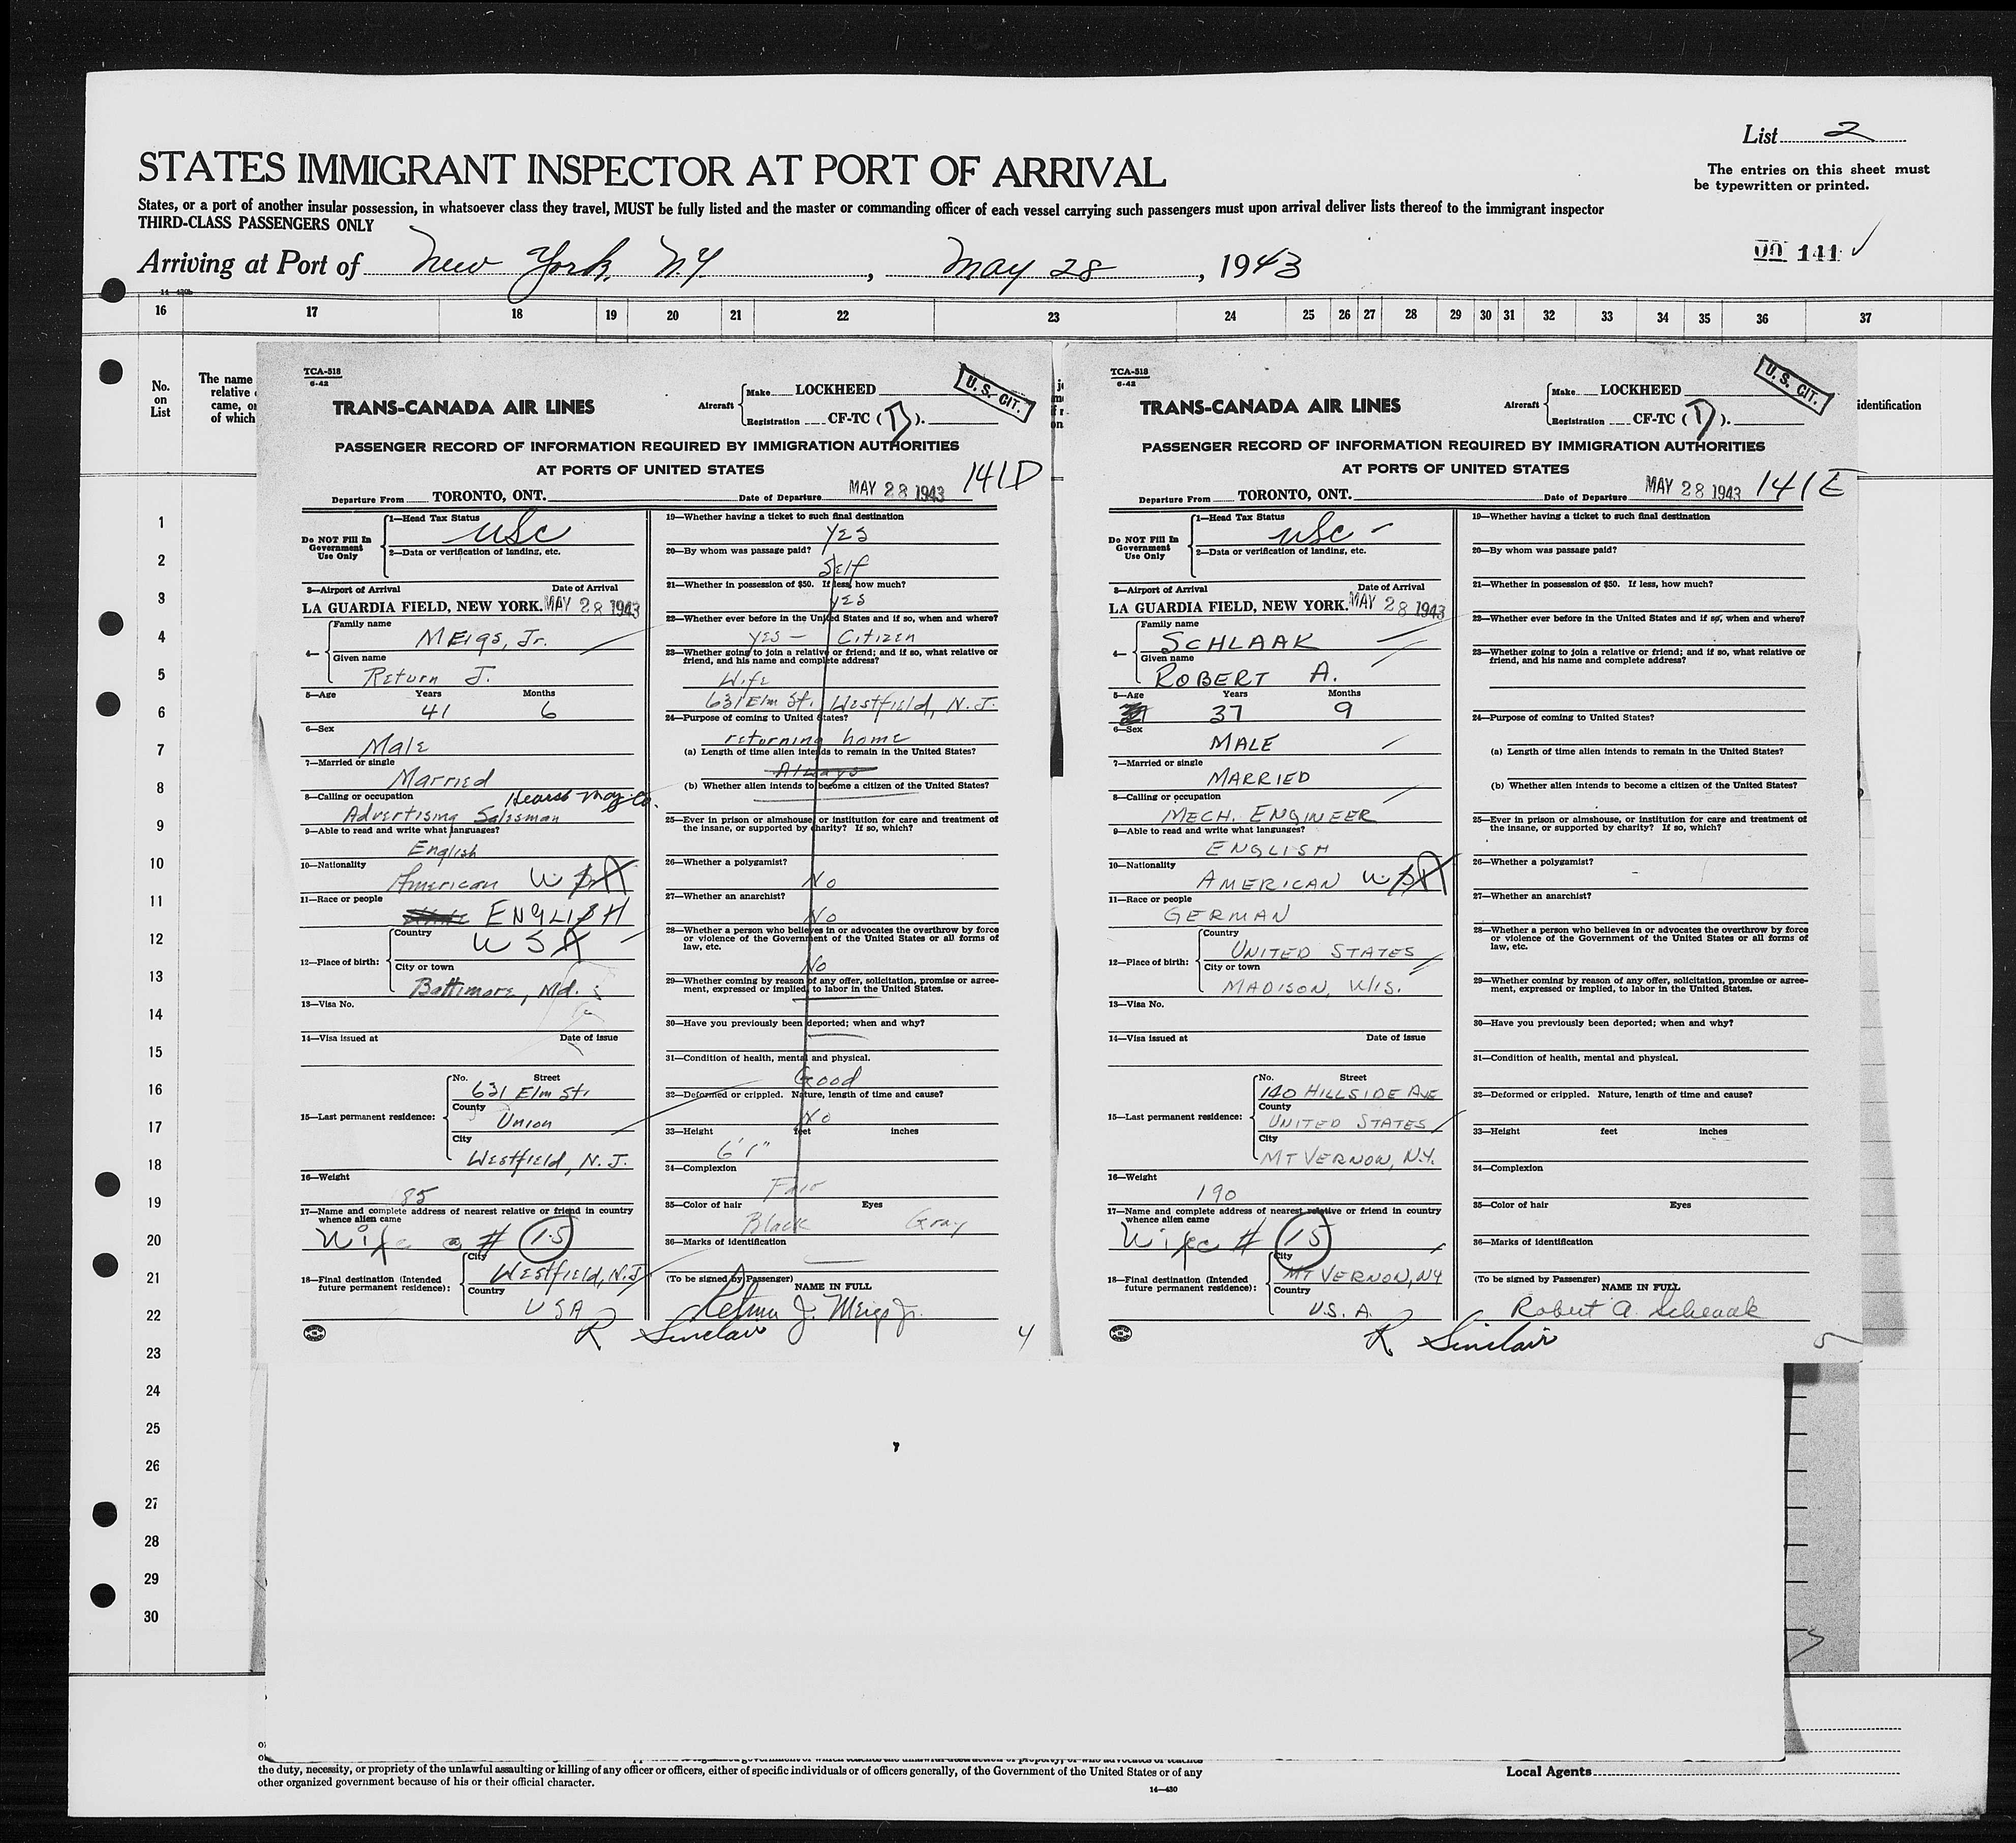 List 2
STATES IMMIGRANT INSPECTOR AT PORT OF ARRIVAL
The entries on this sheet must
be typewritten or printed.
States, or a port of another insular possession, in whatsoever class they travel, MUST be fully listed and the master or commanding officer of each vessel carrying such passengers must upon arrival deliver lists thereof to the immigrant inspector
THIRD-CLASS PASSENGERS ONLY
Arriving at Port of New York, N.Y. , May 28 , 1943
00 141
16 17 18 19 20 21 22 23 24 25 26 27 28 29 30 31 32 33 34 35 36 37
No.
on
List
The name
relative
came, or
of which
identification
1
2
3
4
5
6
7
8
9
10
11
12
13
14
15
16
17
18
19
20
21
22
23
24
25
26
27
28
29
30
TCA-518
6-42
TRANS-CANADA AIR LINES
Aircraft
Make LOCKHEED
Registration CF-TC (D).
U.S. CIT.
PASSENGER RECORD OF INFORMATION REQUIRED BY IMMIGRATION AUTHORITIES
AT PORTS OF UNITED STATES
141D
Departure From TORONTO, ONT. Date of Departure MAY 28 1943
Do NOT Fill In
Government
Use Only
1—Head Tax Status
USC
2—Data or verification of landing, etc.
3—Airport of Arrival Date of Arrival
LA GUARDIA FIELD, NEW YORK. MAY 28 1943
4—
Family name
MEIGS, Jr.
Given name
Return J.
5—Age Years Months
41 6
6—Sex
Male
7—Married or single
Married
8—Calling or occupation Hearst Mag. Co.
Advertising Salesman
9—Able to read and write what languages?
English
10—Nationality
American USA
11—Race or people
ENGLISH
12—Place of birth:
Country
USA
City or town
Baltimore, Md.
13—Visa No.
14—Visa issued at Date of issue
15—Last permanent residence:
No. Street
631 Elm St.
County
Union
City
Westfield, N.J.
16—Weight
85
17—Name and complete address of nearest relative or friend in country
whence alien came
Wife @ # 15
18—Final destination (Intended
future permanent residence):
City
Westfield, N.J.
Country
USA
19—Whether having a ticket to such final destination
Yes
20—By whom was passage paid?
Self
21—Whether in possession of $50. If less, how much?
yes
22—Whether ever before in the United States and if so, when and where?
yes — Citizen
23—Whether going to join a relative or friend; and if so, what relative or
friend, and his name and complete address?
Wife
631 Elm St. Westfield, N.J.
24—Purpose of coming to United States?
returning home
(a) Length of time alien intends to remain in the United States?
Always
(b) Whether alien intends to become a citizen of the United States?
25—Ever in prison or almshouse, or institution for care and treatment of
the insane, or supported by charity? If so, which?
26—Whether a polygamist?
No
27—Whether an anarchist?
No
28—Whether a person who believes in or advocates the overthrow by force
or violence of the Government of the United States or all forms of
law, etc.
No
29—Whether coming by reason of any offer, solicitation, promise or agree-
ment, expressed or implied, to labor in the United States.
30—Have you previously been deported; when and why?
31—Condition of health, mental and physical.
Good
32—Deformed or crippled. Nature, length of time and cause?
No
33—Height feet inches
6'1"
34—Complexion
Fair
35—Color of hair Eyes
Black Gray
36—Marks of identification
(To be signed by Passenger)
NAME IN FULL
Return J. Meigs Jr.
R Sinclair
4
TCA-518
6-42
TRANS-CANADA AIR LINES
Aircraft
Make LOCKHEED
Registration CF-TC (D).
U.S. CIT.
PASSENGER RECORD OF INFORMATION REQUIRED BY IMMIGRATION AUTHORITIES
AT PORTS OF UNITED STATES
141E
Departure From TORONTO, ONT. Date of Departure MAY 28 1943
Do NOT Fill In
Government
Use Only
1—Head Tax Status
USC
2—Data or verification of landing, etc.
3—Airport of Arrival Date of Arrival
LA GUARDIA FIELD, NEW YORK. MAY 28 1943
4—
Family name
SCHLAAK
Given name
ROBERT A.
5—Age Years Months
37 9
6—Sex
MALE
7—Married or single
MARRIED
8—Calling or occupation
MECH. ENGINEER
9—Able to read and write what languages?
ENGLISH
10—Nationality
AMERICAN USA
11—Race or people
GERMAN
12—Place of birth:
Country
UNITED STATES
City or town
MADISON, WIS.
13—Visa No.
14—Visa issued at Date of issue
15—Last permanent residence:
No. Street
140 HILLSIDE AVE
County
UNITED STATES
City
MT VERNON, N.Y.
16—Weight
190
17—Name and complete address of nearest relative or friend in country
whence alien came
Wife # 15
18—Final destination (Intended
future permanent residence):
City
MT VERNON, NY
Country
U.S.A.
19—Whether having a ticket to such final destination
20—By whom was passage paid?
21—Whether in possession of $50. If less, how much?
22—Whether ever before in the United States and if so, when and where?
23—Whether going to join a relative or friend; and if so, what relative or
friend, and his name and complete address?
24—Purpose of coming to United States?
(a) Length of time alien intends to remain in the United States?
(b) Whether alien intends to become a citizen of the United States?
25—Ever in prison or almshouse, or institution for care and treatment of
the insane, or supported by charity? If so, which?
26—Whether a polygamist?
27—Whether an anarchist?
28—Whether a person who believes in or advocates the overthrow by force
or violence of the Government of the United States or all forms of
law, etc.
29—Whether coming by reason of any offer, solicitation, promise or agree-
ment, expressed or implied, to labor in the United States.
30—Have you previously been deported; when and why?
31—Condition of health, mental and physical.
32—Deformed or crippled. Nature, length of time and cause?
33—Height feet inches
34—Complexion
35—Color of hair Eyes
36—Marks of identification
(To be signed by Passenger)
NAME IN FULL
Robert A. Schlaak
R Sinclair
5
the duty, necessity, or propriety of the unlawful assaulting or killing of any officer or officers, either of specific individuals or of officers generally, of the Government of the United States or of any
other organized government because of his or their official character.
14—430
Local Agents